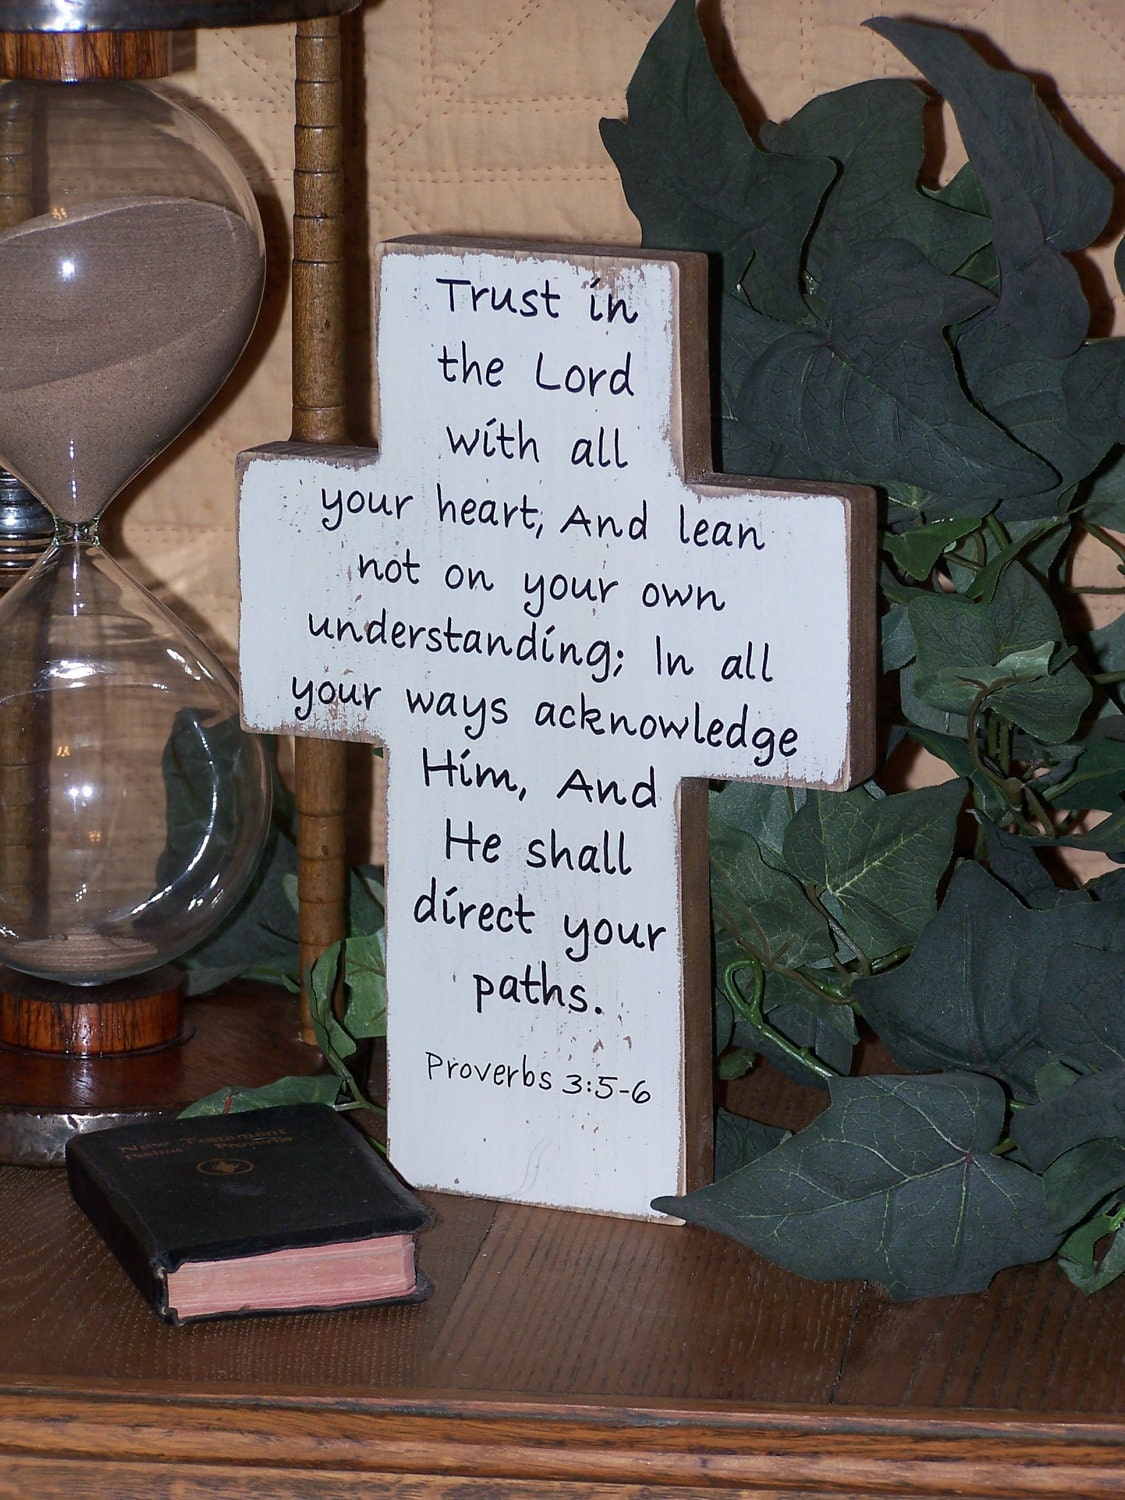 Trust in
the Lord
with all
your heart, And lean
not on your own
understanding; In all
your ways acknowledge
Him, And
He shall
direct your
paths.
Proverbs 3:5-6
New Testament
Psalms Proverbs